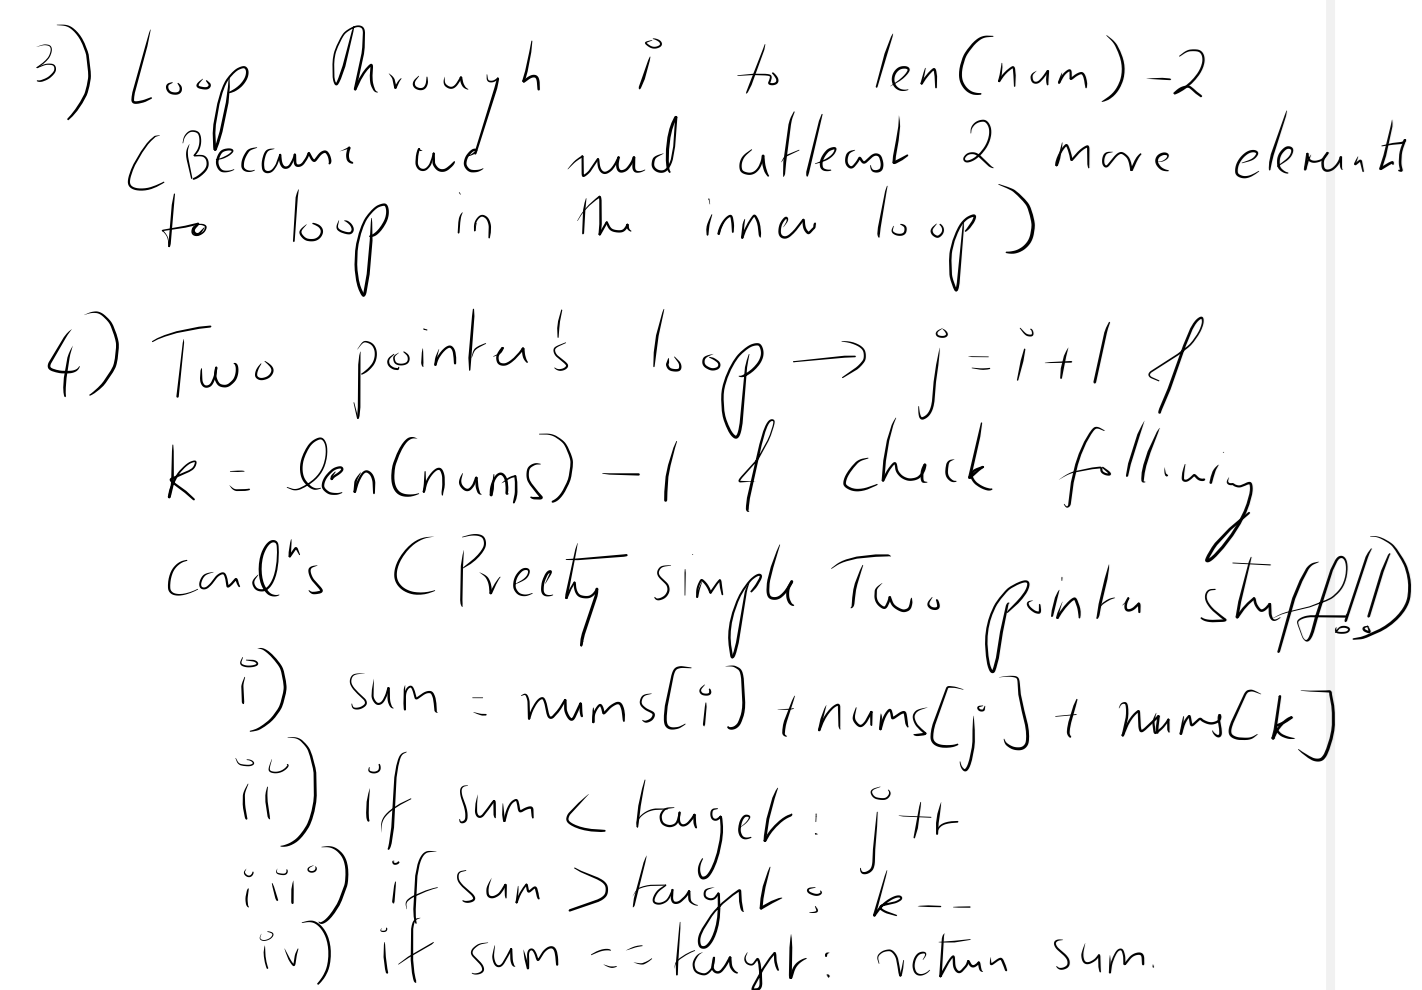 3) Loop through i to len(num) -2
(Because we need atleast 2 more elements
to loop in the inner loop)
4) Two pointer's loop → j = i+1 &
k = len(nums) -1 & check following
condⁿ's (Preety simple Two pointer stuff!!)
i) sum = nums[i] + nums[j] + nums[k]
ii) if sum < target: j++
iii) if sum > target: k--
iv) if sum == target: return sum.